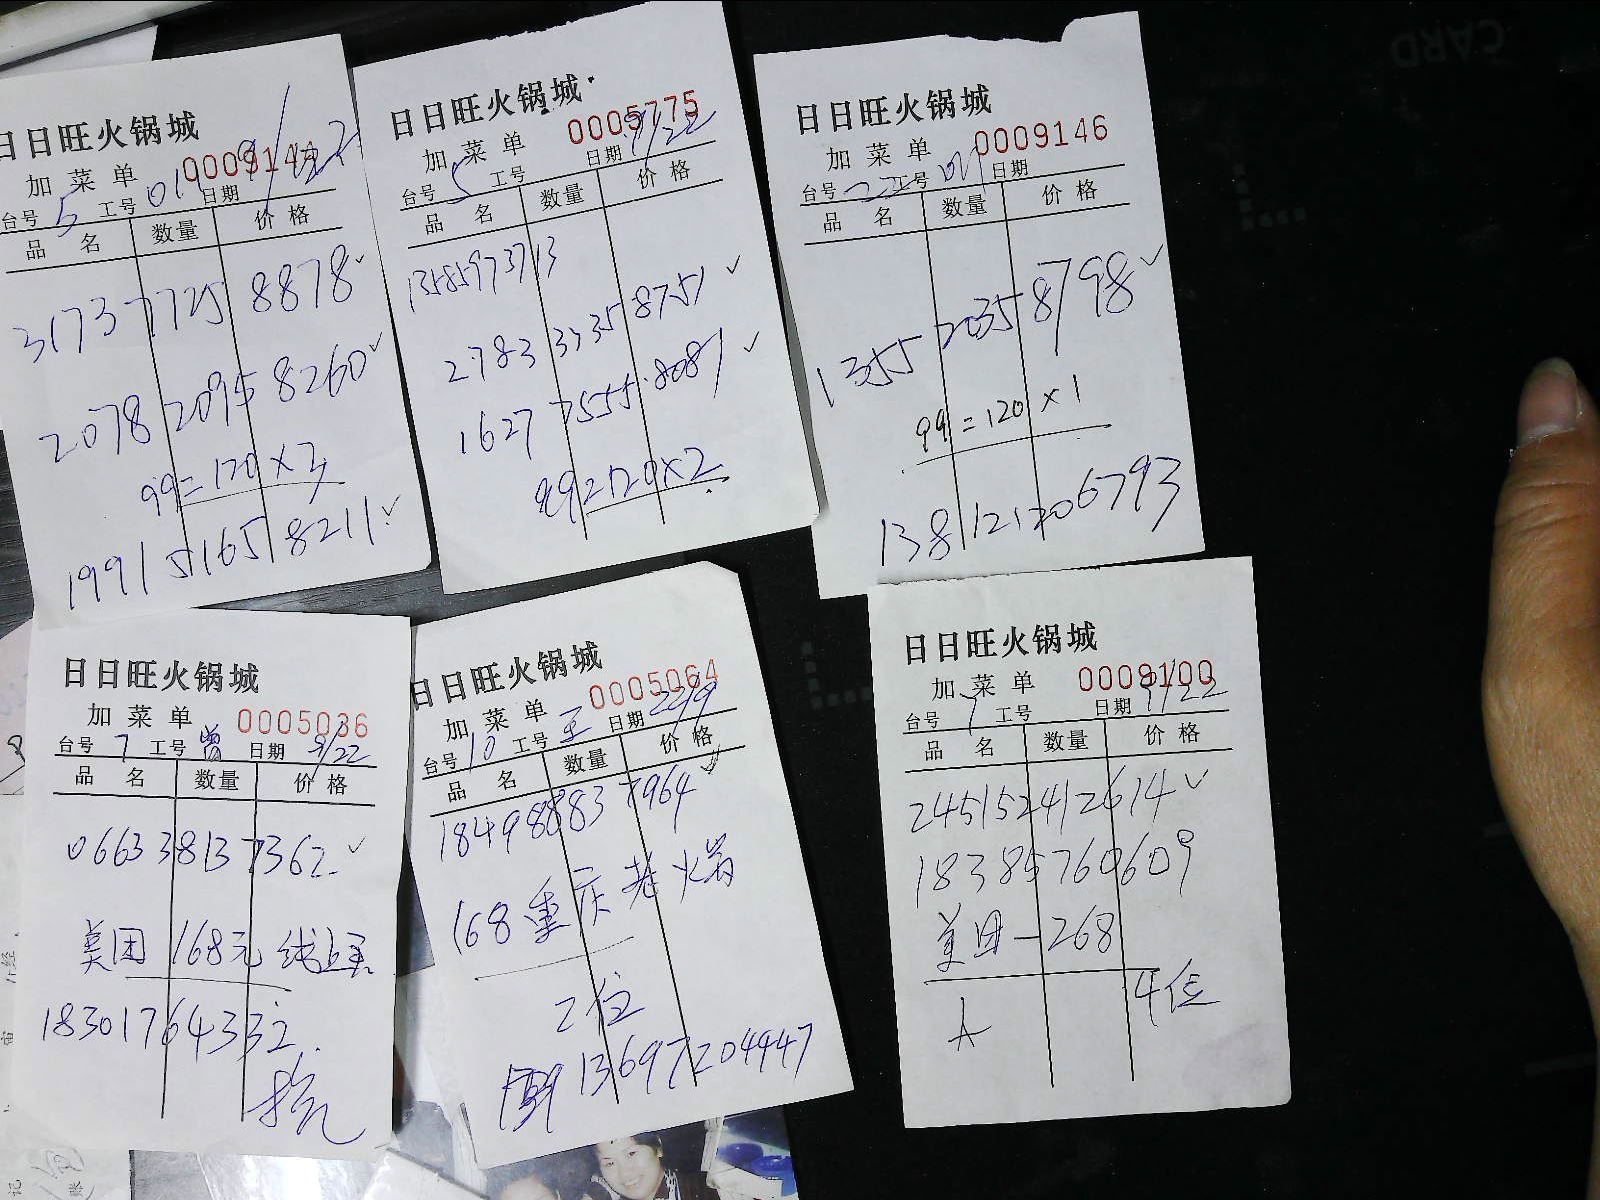 日日旺火锅城
加菜单
台号 5 工号 01 日期 9/22
品名 数量 价格
3173 7725 8878 ✓
2078 2095 8260 ✓
99=120×3
1991 5165 8211 ✓
日日旺火锅城
加菜单 0005775
台号 5 工号 日期 9/22
品名 数量 价格
13585973713
2783 3335 8751 ✓
1627 7555 8081 ✓
99=120×2
日日旺火锅城
加菜单 0009146
台号 工号 01 日期
品名 数量 价格
1355 2035 8798 ✓
99=120×1
138121206793
日日旺火锅城
加菜单 0005036
台号 7 工号 曾 日期 9/22
品名 数量 价格
0663 3813 7362 ✓
美团 168元
18301764332
日日旺火锅城
加菜单 0005064
台号 10 工号 王 日期 22/9
品名 数量 价格
1849 8883 7964 ✓
168重庆老火锅
2位
13697204447
日日旺火锅城
加菜单 0009100
台号 7 工号 日期 9/22
品名 数量 价格
245152412614 ✓
18385760609
美团-268
A 4位
CARD